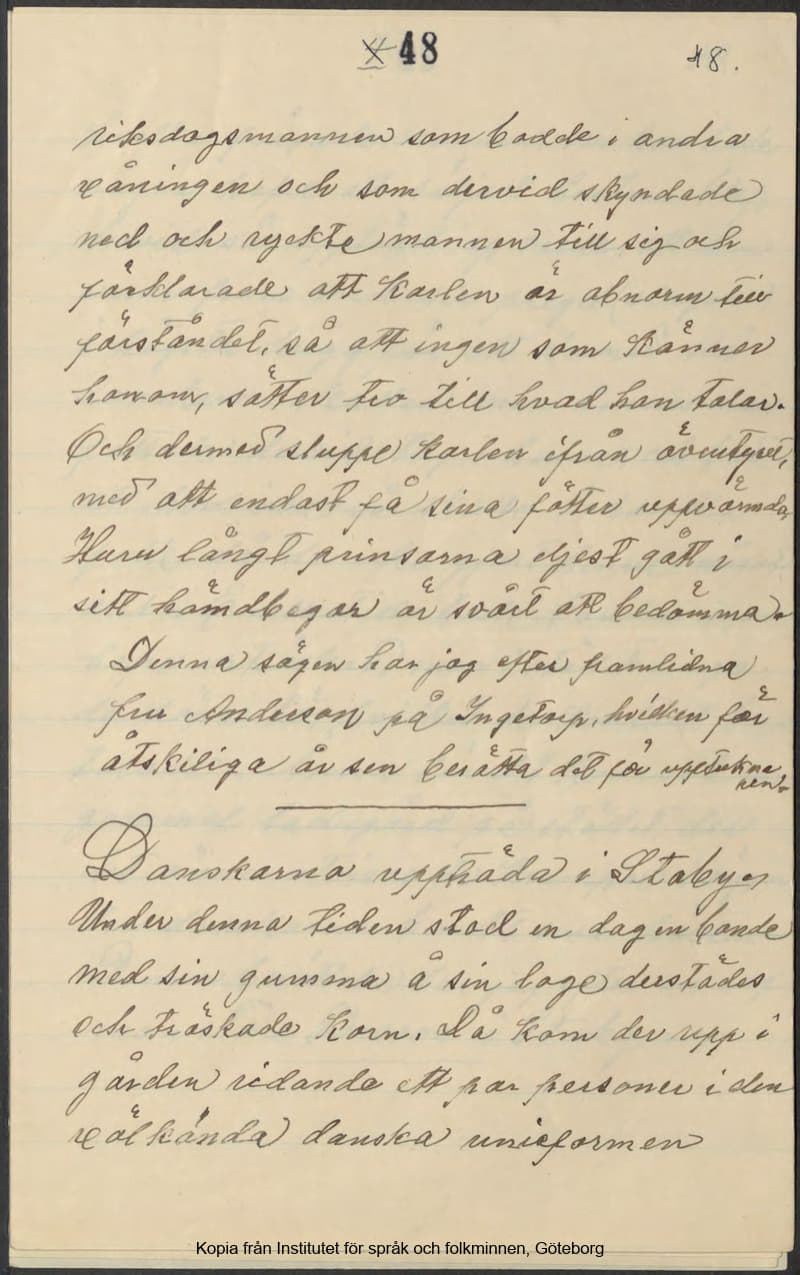 48 48.
riksdagsmannen som bodde i andra
våningen och som dervid skyndade
ned och ryckte mannen till sig och
förklarade att karlen är abnorm till
förståndet, så att ingen som känner
honom, sätter tro till hvad han talar.
Och dermed sluppe karlen ifrån äventyret,
med att endast få sina fötter uppvärmda.
Huru långt prinsarna eljest gått i
sitt hämdbegär är svårt att bedömma.
Denna sägen har jag efter framlidna
fru Anderson på Ingetorp, hvilken för
åtskiliga år sen berätta det för upptecknaren.
Danskarna uppträda i Staby.
Under denna tiden stod en dag en bonde
med sin gumma å sin loge derstädes
och tröskade korn. Då kom der upp i
gården ridande ett par personer i den
välkända danska uniformen
Kopia från Institutet för språk och folkminnen, Göteborg